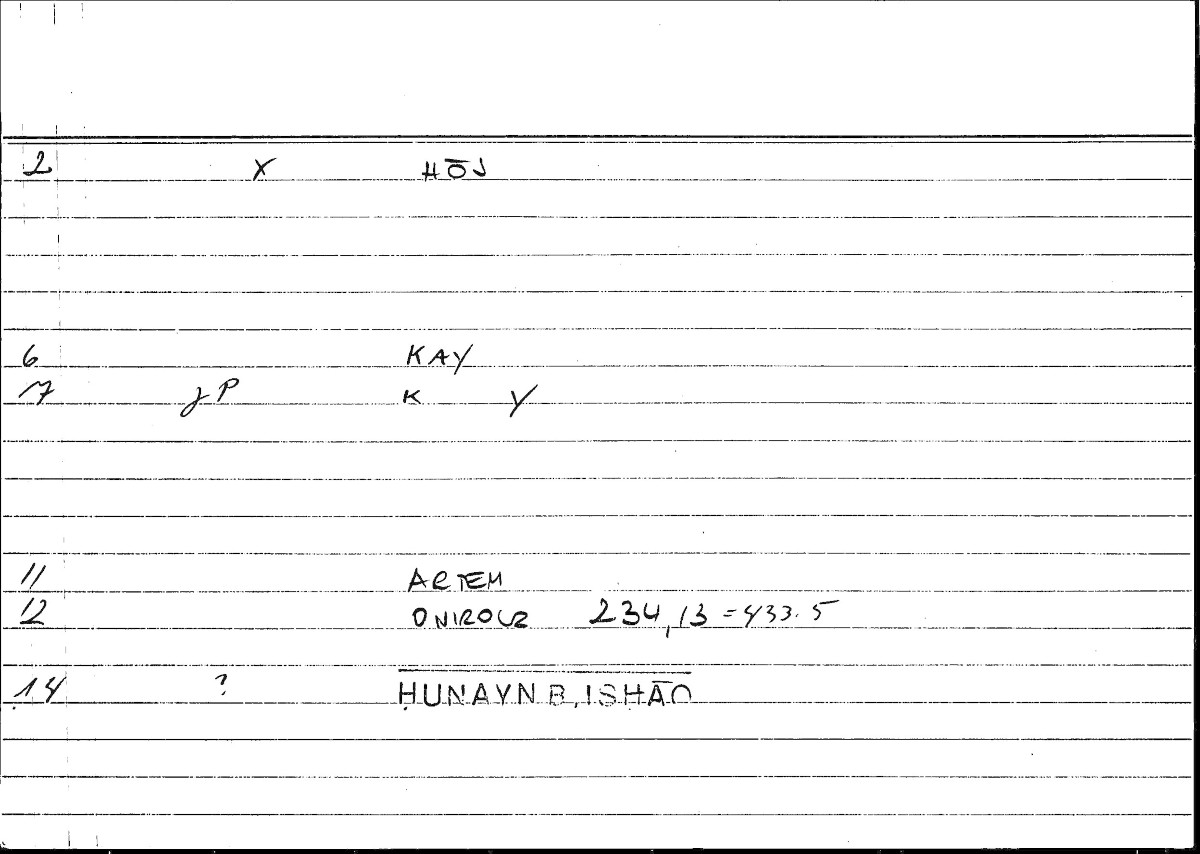 2 X HŌJ
6 KAY
17 JP K Y
11 ARTEM
12 ONIROCR 234,13 = 433.5
14 ? ḤUNAYN B, ISḤĀQ